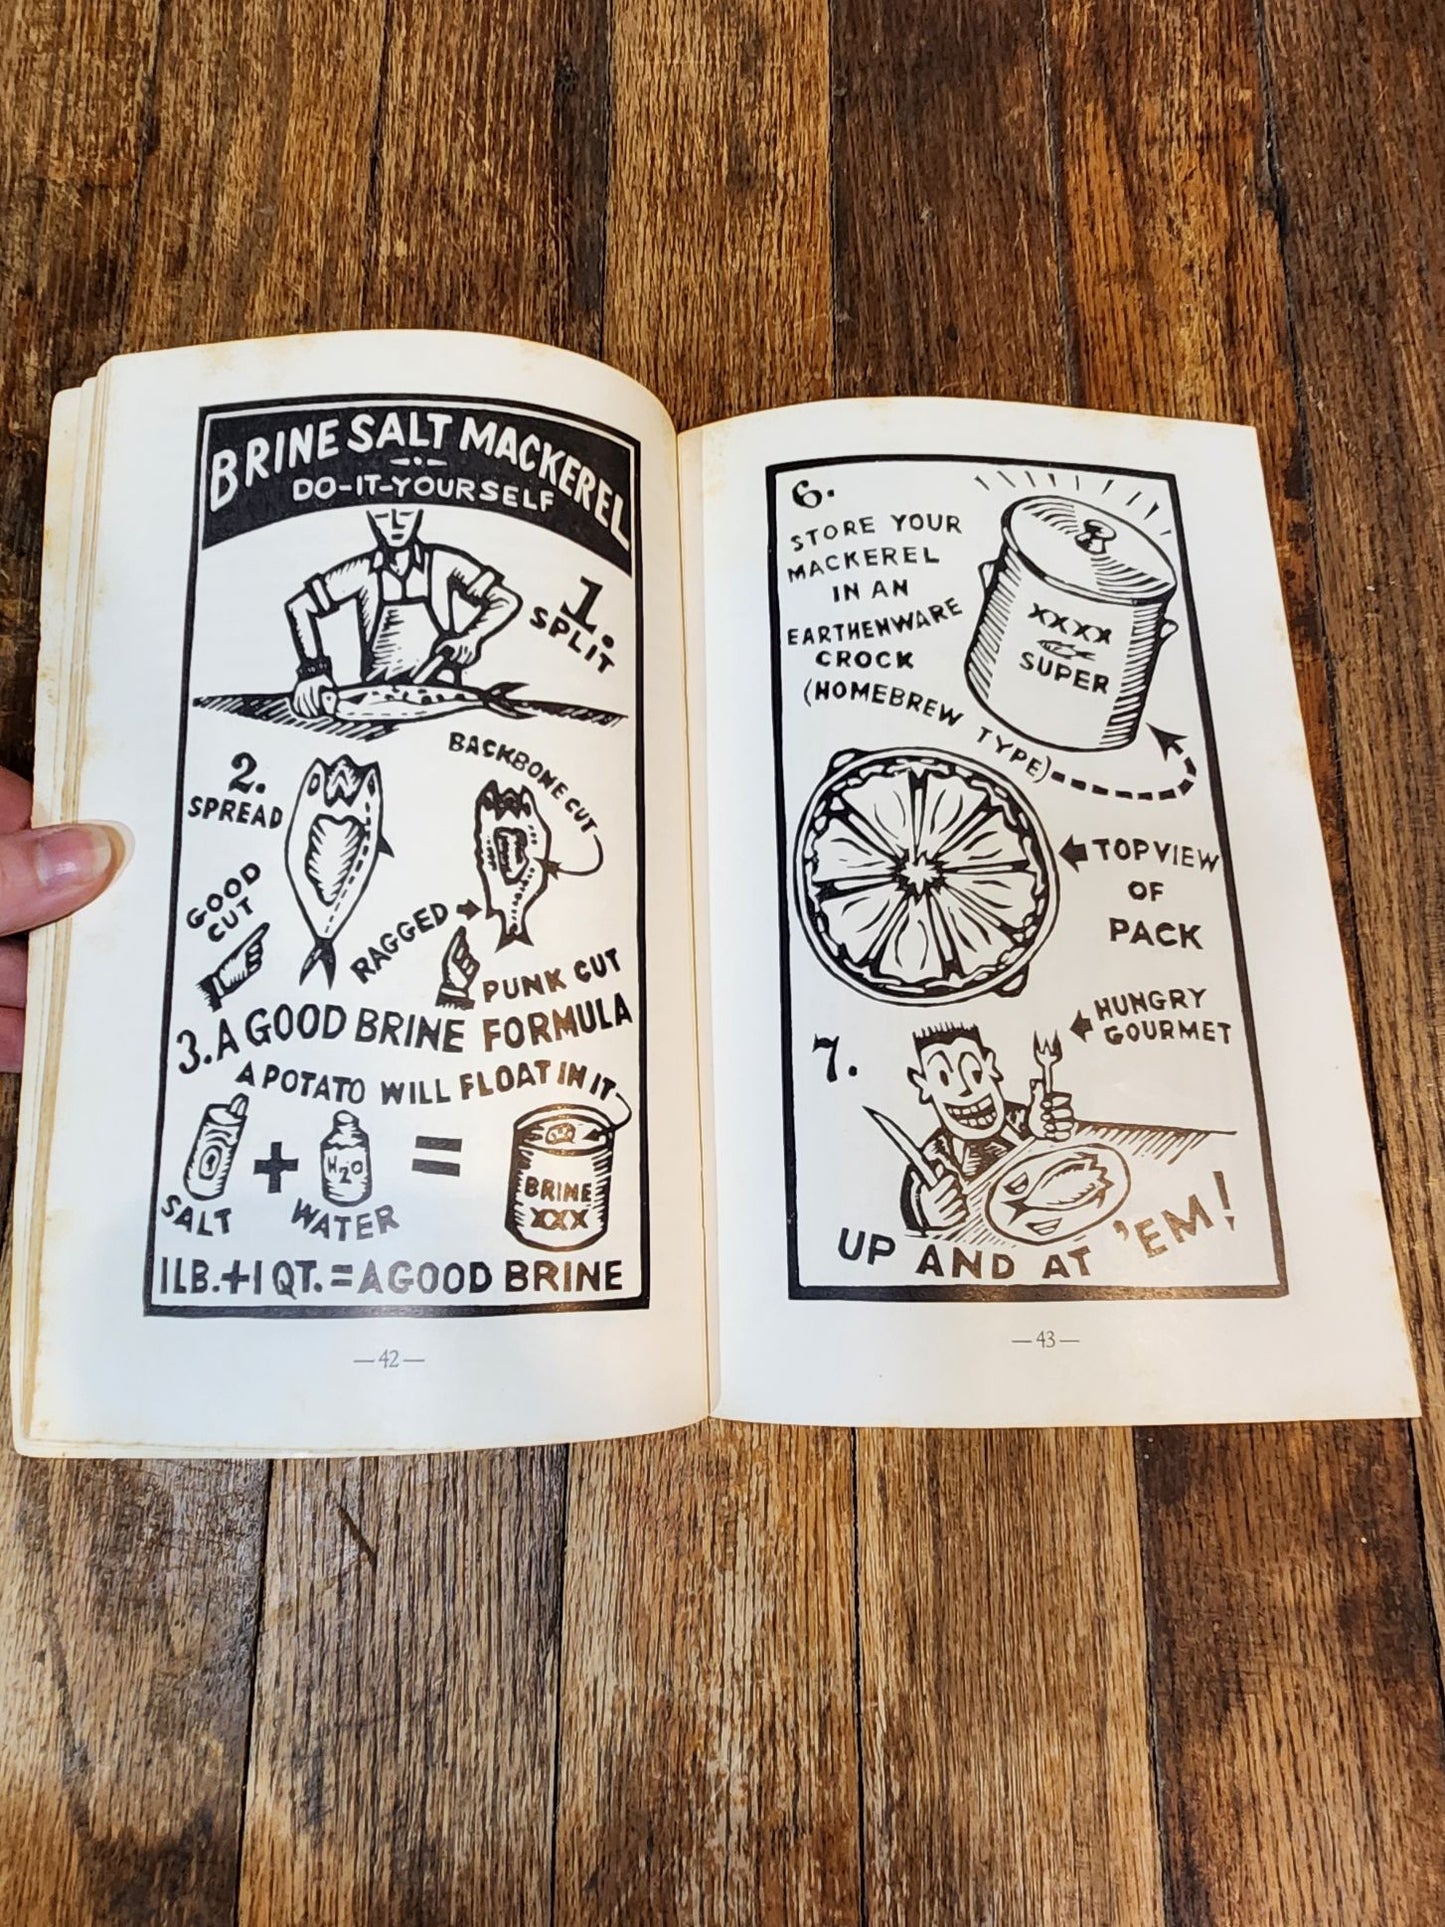 BRINE SALT MACKEREL
DO-IT-YOURSELF
1.
SPLIT
2.
SPREAD
BACKBONE CUT
GOOD
CUT
RAGGED
PUNK CUT
3. A GOOD BRINE FORMULA
A POTATO WILL FLOAT IN IT
+
H2O
=
BRINE
XXX
SALT
WATER
1 LB. + 1 QT. = A GOOD BRINE
— 42 —
6.
STORE YOUR
MACKEREL
IN AN
EARTHENWARE
CROCK
(HOMEBREW TYPE)
XXXX
SUPER
TOP VIEW
OF
PACK
HUNGRY
GOURMET
7.
UP AND AT 'EM!
— 43 —